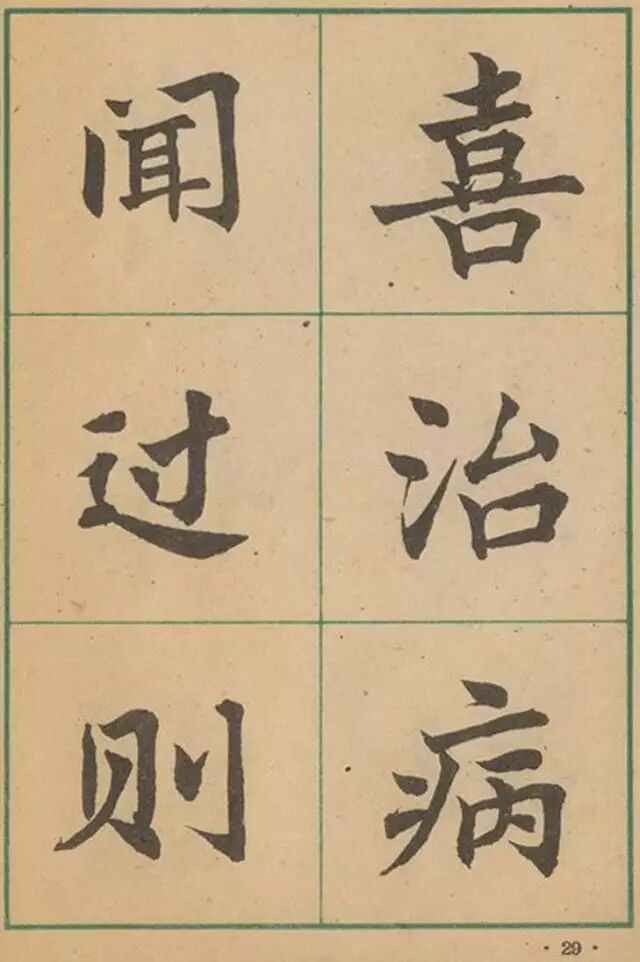 闻过则
喜治病
· 29 ·